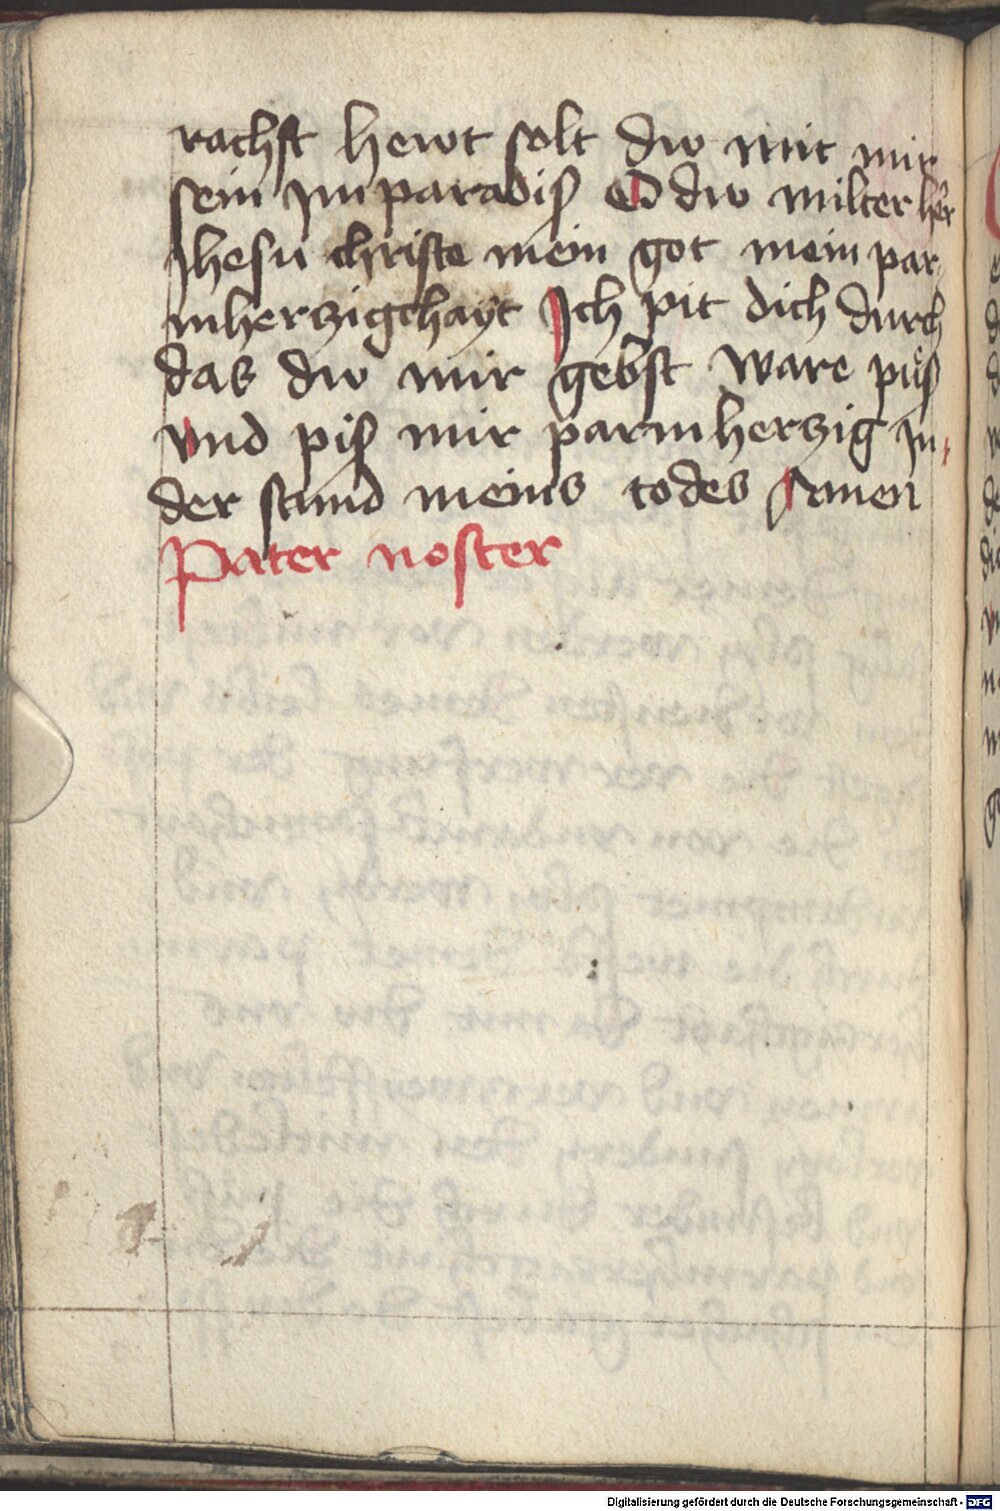 rachst hewt solt dw mit mir
sein Im paradiß O dw milter her
Jhesu christe mein got mein par
mherzigchayt Ich pit dich durch
das dw mir gebst ware pueß
vnd piß mir parmherzig In
der stund meins todes Amen
Pater noster
Digitalisierung gefördert durch die Deutsche Forschungsgemeinschaft - DFG